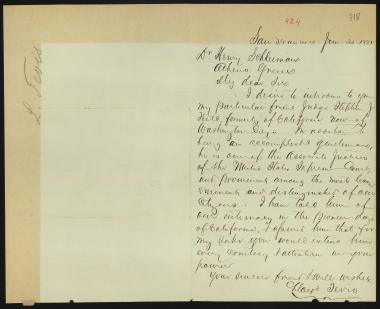 424
318
L. Tevis
San Francisco, Jun 1881
Dr Henry Schliemann
Athens Greece
My dear Sir
I desire to introduce to you
my particular friend Judge Stephen J
Field, formerly of California now of
Washington City. In addition to
being an accomplished gentleman,
he is one of the Associate Justices
of the United States Supreme Court,
and prominent among the most
and distinguished of our
Citizens. I have told him of
our intimacy in the pioneer days
of California, & assured him that for
my sake you would extend him
every courtesy & attention in your
power
Your sincere friend & well wisher
Lloyd Tevis